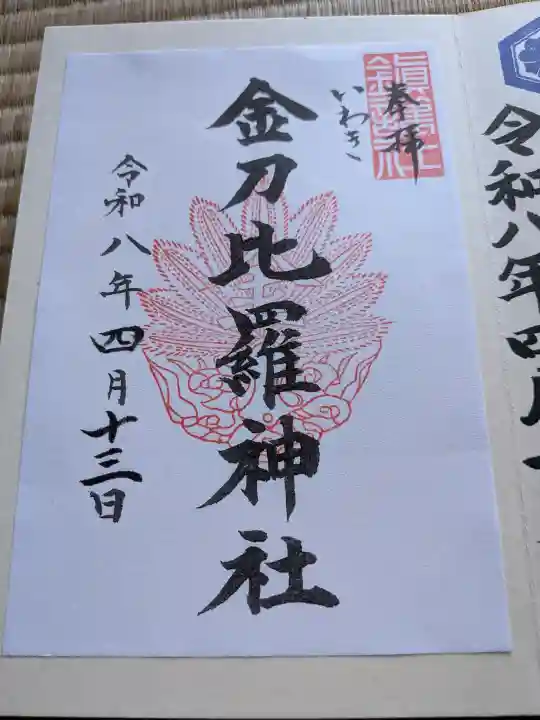 奉拝
いわき
金刀比羅神社
令和八年四月十三日
令和八年四月十